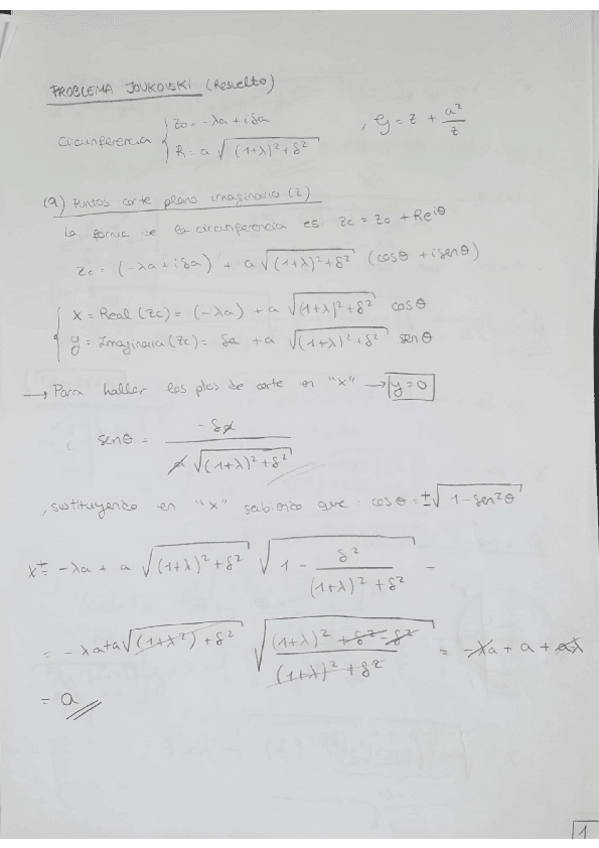 PROBLEMA JOUKOVSKI (Resuelto)
Circunferencia { z₀ = -λa + iδa
R = a √((1+λ)² + δ²) , ζ = z + a²/z
(a) Puntos corte plano imaginario (z)
La forma de la circunferencia es zc = z₀ + Re^iθ
zc = (-λa + iδa) + a √((1+λ)² + δ²) (cosθ + i senθ)
{ x = Real (zc) = (-λa) + a √((1+λ)² + δ²) cosθ
y = Imaginaria (zc) = δa + a √((1+λ)² + δ²) senθ
→ Para hallar los ptos de corte en "x" → y = 0
senθ = -δa / (a √((1+λ)² + δ²))
, sustituyendo en "x" sabiendo que cosθ = ± √(1 - sen²θ)
x⁺ = -λa + a √((1+λ)² + δ²) √(1 - δ²/((1+λ)² + δ²)) =
= -λa + a √((1+λ²) + δ²) √(((1+λ)² + δ² - δ²)/((1+λ)² + δ²)) = -λa + a + aλ
= a
1